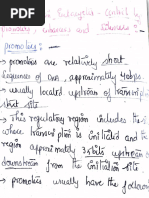 Eukaryotes - Control by
promoters, enhancers and silencers :-
promoters :
→ promoters are relatively short
sequences of DNA, approximately
→ usually located upstream of
start site
→ This regulatory region includes the
where transcription is initiated and the
region approximately upstream
downstream from the initiation site
→ promoters usually have the following